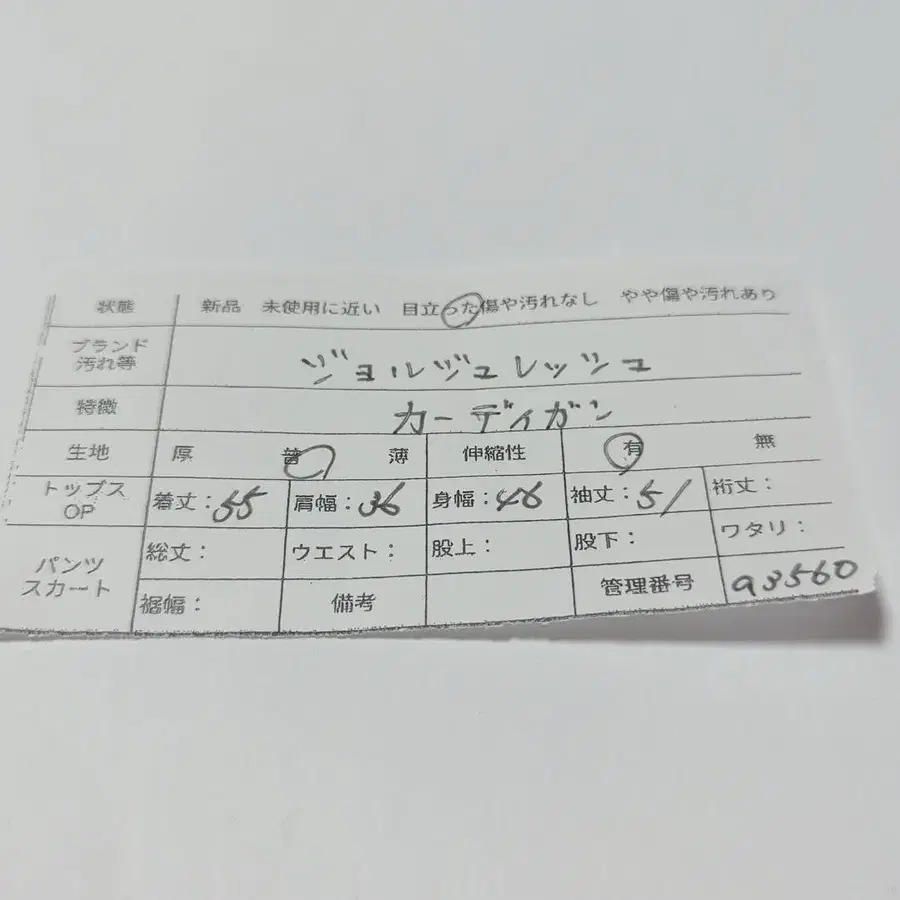 状態 新品 未使用に近い 目立った傷や汚れなし やや傷や汚れあり
ブランド
汚れ等
ジョルジュレッシュ
特徴 カーディガン
生地 厚 普 薄 伸縮性 有 無
トップス
OP
着丈：55 肩幅：36 身幅：46 袖丈：51 裄丈：
パンツ
スカート
総丈： ウエスト： 股上： 股下： ワタリ：
裾幅： 備考 管理番号 a3560